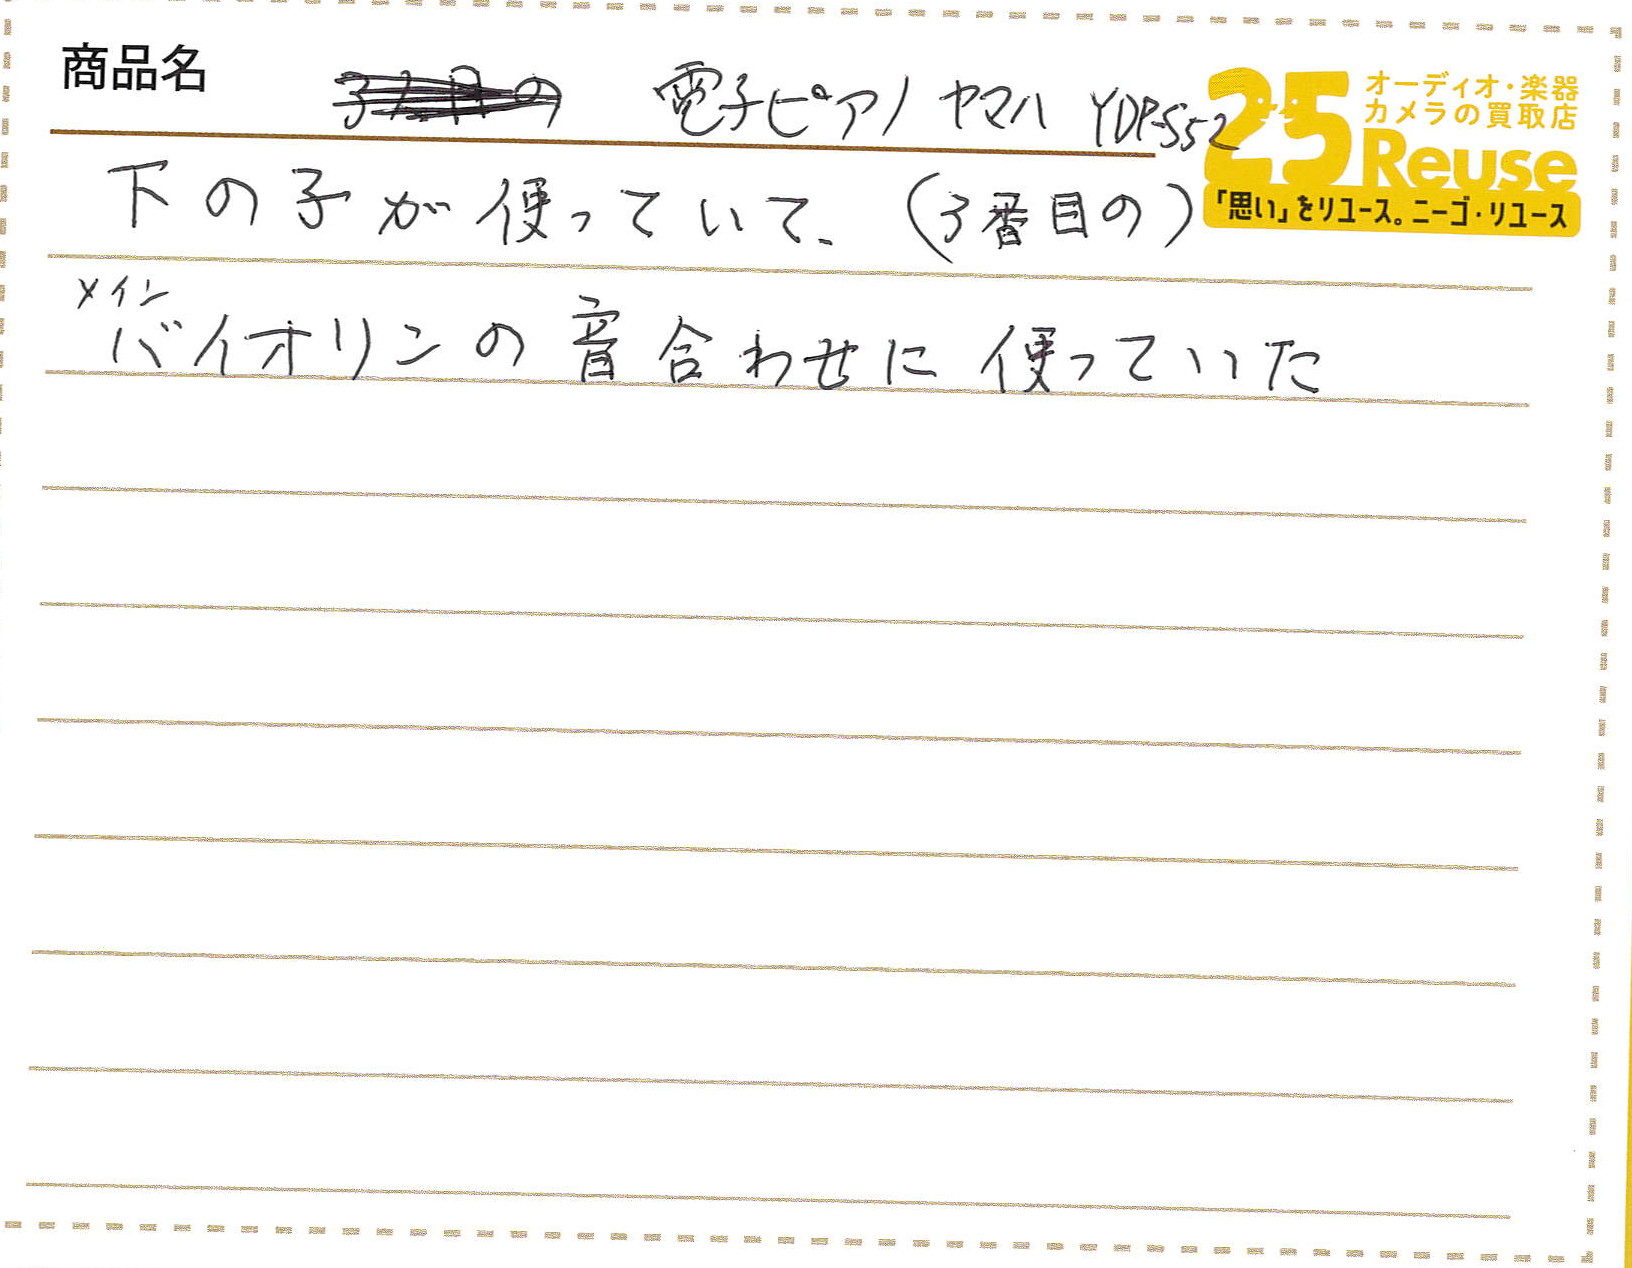 商品名 電子ピアノ ヤマハ YDP-S52
25
オーディオ・楽器
カメラの買取店
Reuse
「思い」をリユース。ニーゴ・リユース
下の子が使っていて、(3番目の)
メイン
バイオリンの音合わせに使っていた